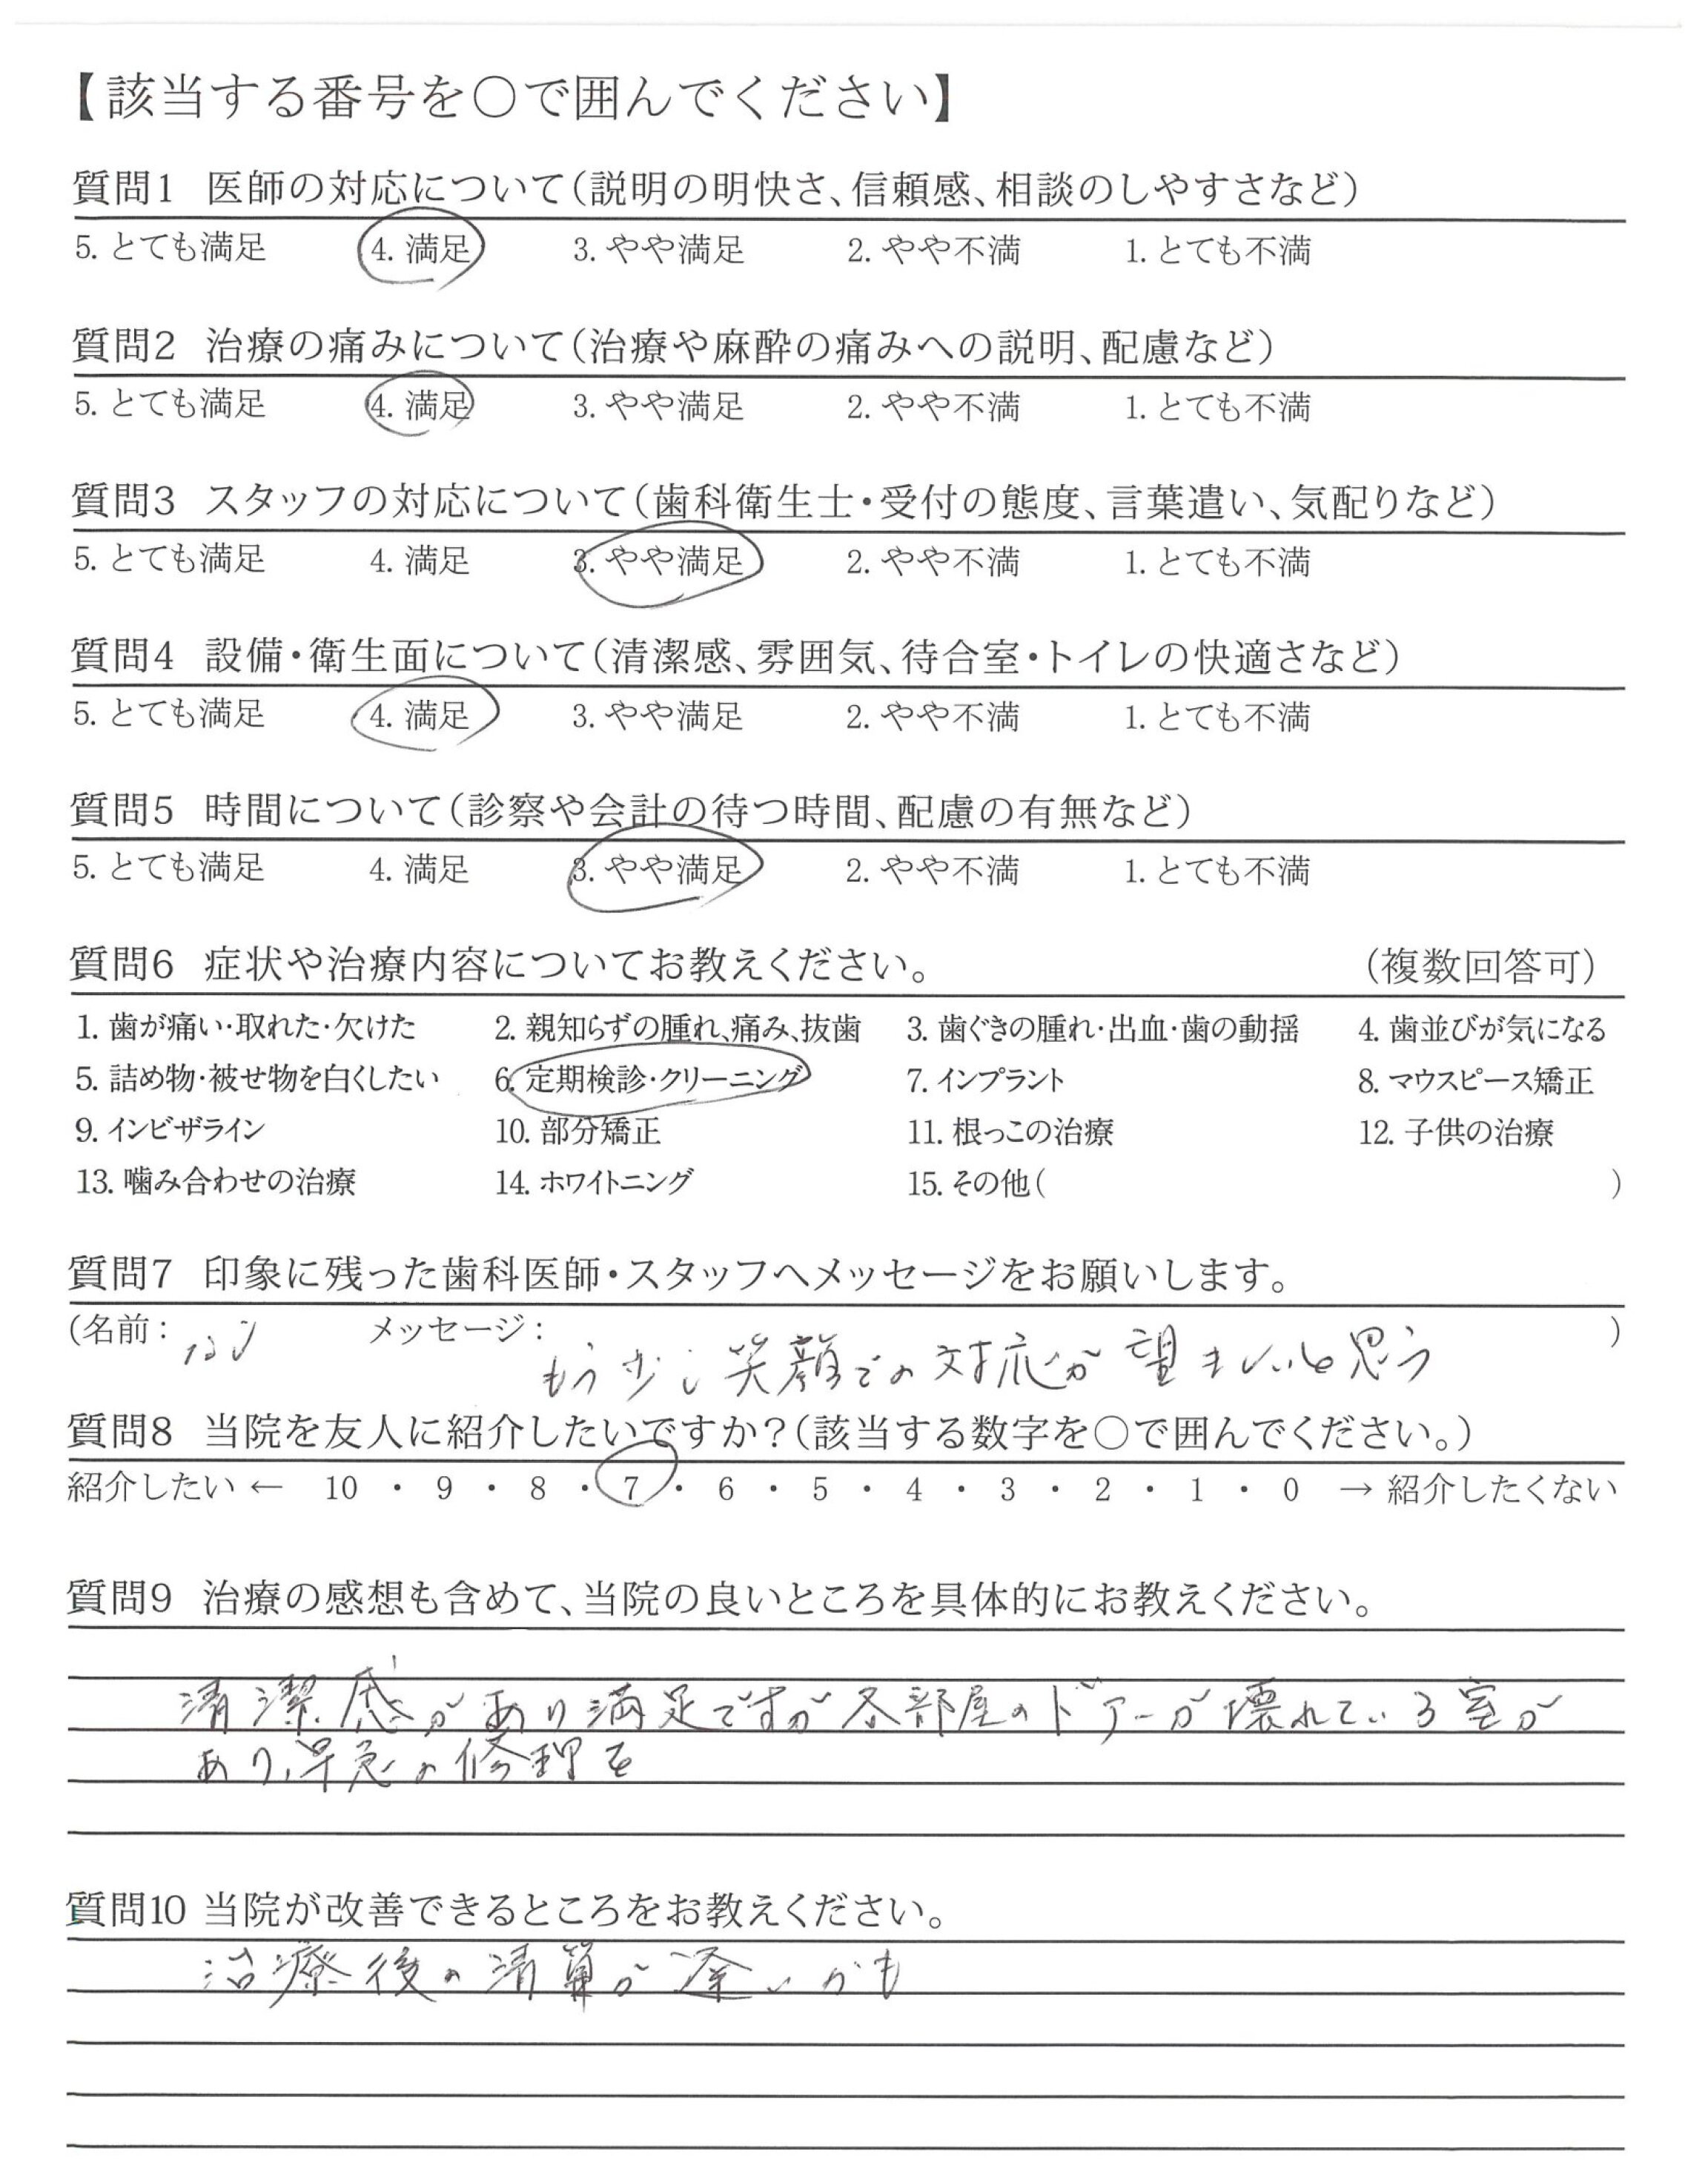 【該当する番号を○で囲んでください】
質問1 医師の対応について(説明の明快さ、信頼感、相談のしやすさなど)
5. とても満足 4. 満足 3. やや満足 2. やや不満 1. とても不満
質問2 治療の痛みについて(治療や麻酔の痛みへの説明、配慮など)
5. とても満足 4. 満足 3. やや満足 2. やや不満 1. とても不満
質問3 スタッフの対応について(歯科衛生士・受付の態度、言葉遣い、気配りなど)
5. とても満足 4. 満足 3. やや満足 2. やや不満 1. とても不満
質問4 設備・衛生面について(清潔感、雰囲気、待合室・トイレの快適さなど)
5. とても満足 4. 満足 3. やや満足 2. やや不満 1. とても不満
質問5 時間について(診察や会計の待つ時間、配慮の有無など)
5. とても満足 4. 満足 3. やや満足 2. やや不満 1. とても不満
質問6 症状や治療内容についてお教えください。 (複数回答可)
1. 歯が痛い・取れた・欠けた 2. 親知らずの腫れ、痛み、抜歯 3. 歯ぐきの腫れ・出血・歯の動揺 4. 歯並びが気になる
5. 詰め物・被せ物を白くしたい 6. 定期検診・クリーニング 7. インプラント 8. マウスピース矯正
9. インビザライン 10. 部分矯正 11. 根っこの治療 12. 子供の治療
13. 噛み合わせの治療 14. ホワイトニング 15. その他( )
質問7 印象に残った歯科医師・スタッフへメッセージをお願いします。
(名前: メッセージ: もう少し笑顔での対応が望ましいと思う )
質問8 当院を友人に紹介したいですか?(該当する数字を○で囲んでください。)
紹介したい ← 10 ・ 9 ・ 8 ・ 7 ・ 6 ・ 5 ・ 4 ・ 3 ・ 2 ・ 1 ・ 0 → 紹介したくない
質問9 治療の感想も含めて、当院の良いところを具体的にお教えください。
清潔感があり満足ですが各部屋のドアーが壊れている室が
あり、早急の修理を
質問10 当院が改善できるところをお教えください。
治療後の清算が遅いかも